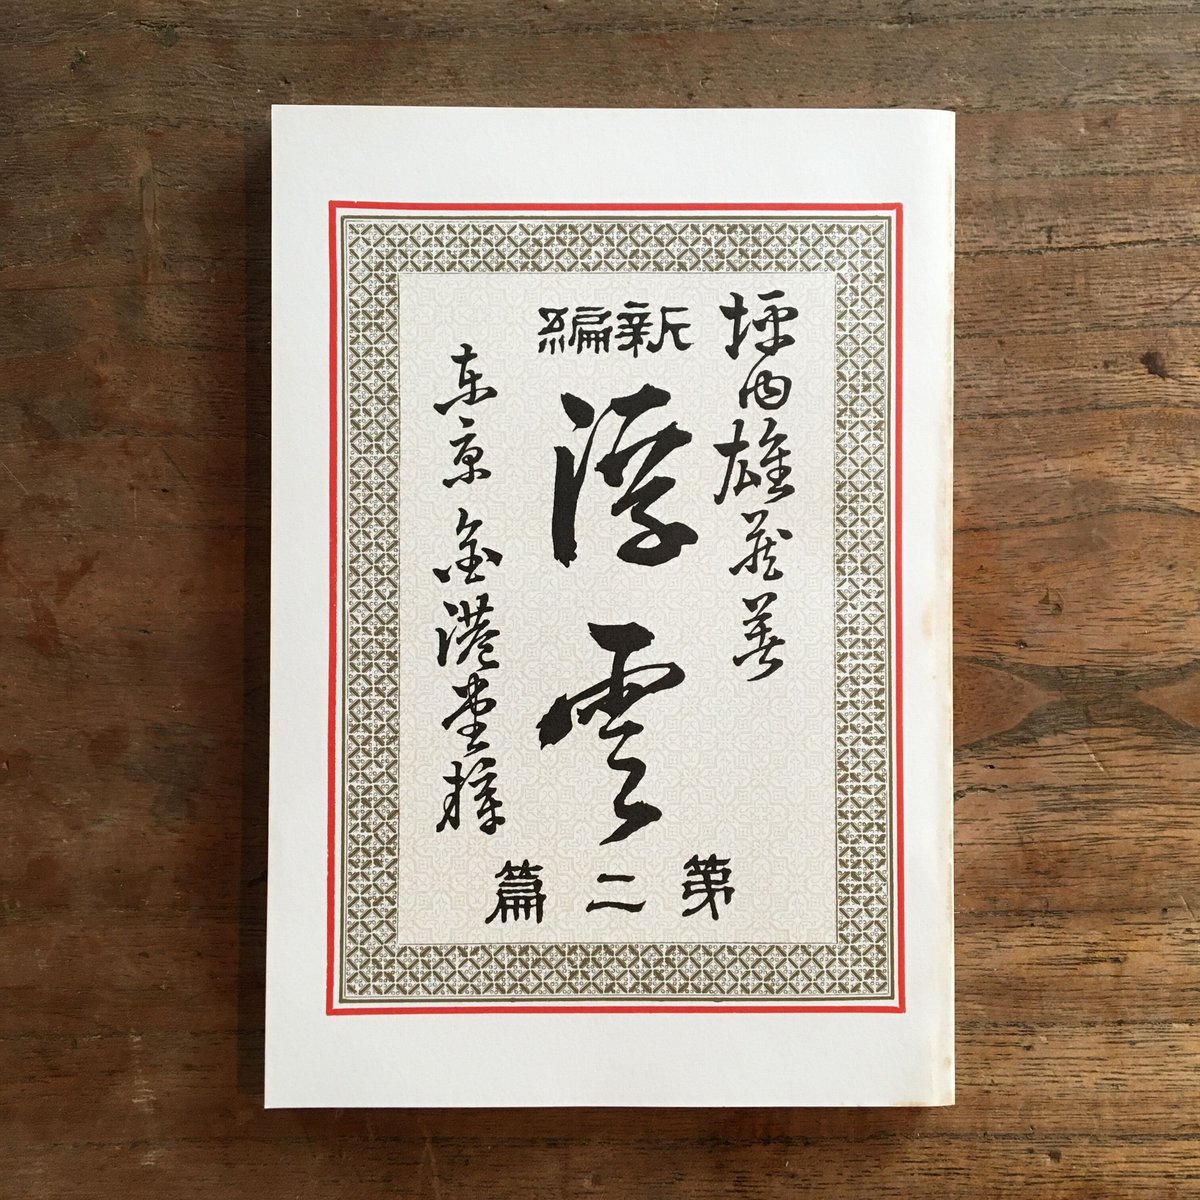 坪内雄蔵著
新編
浮雲
第二篇
東京 金港堂梓